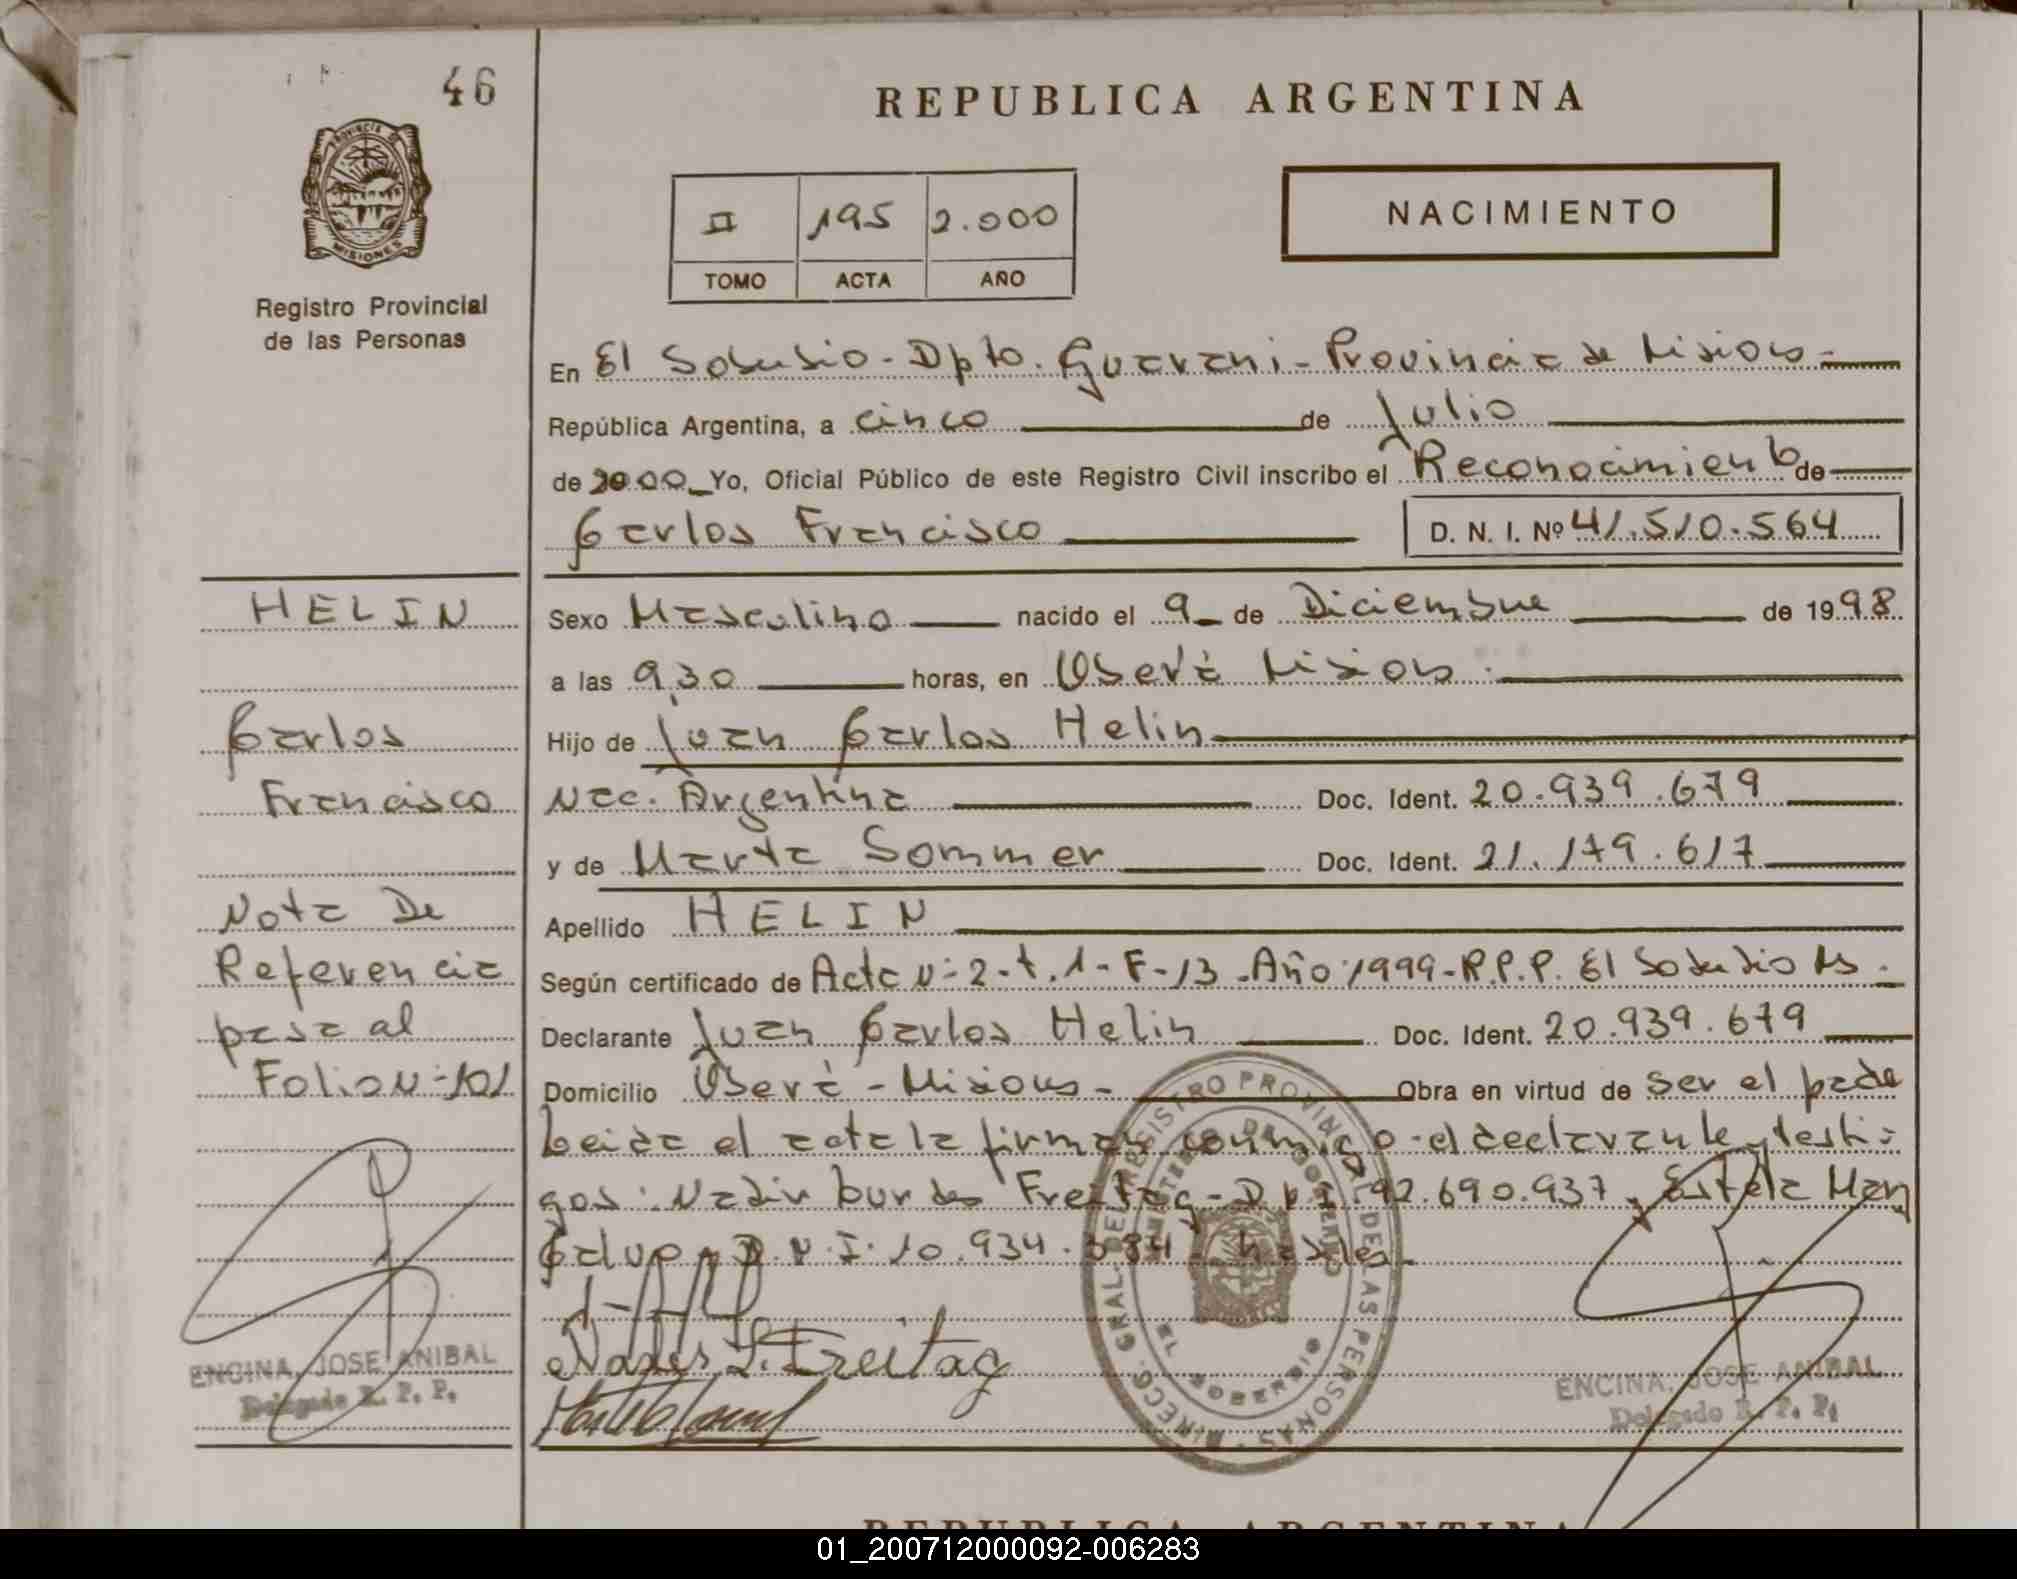 46
REPUBLICA ARGENTINA
PROVINCIA DE
MISIONES
II 195 2.000
TOMO ACTA AÑO
NACIMIENTO
Registro Provincial
de las Personas
En El Soberbio - Dpto. Guarani - Provincia de Misiones -
República Argentina, a cinco de Julio
de 2000 Yo, Oficial Público de este Registro Civil inscribo el Reconocimiento de
Carlos Francisco D. N. I. Nº 41.510.564
HELIN
Sexo Masculino nacido el 9 de Diciembre de 1998
a las 9,30 horas, en Oberá Misiones.
Carlos
Hijo de Juan Carlos Helin
Francisco
Nac. Argentina Doc. Ident. 20.939.679
y de Marta Sommer Doc. Ident. 21.179.617
Nota De
Apellido HELIN
Referencia
Según certificado de Acta Nº 2 - t. 1 - F - 13 - Año 1999 - R.P.P. El Soberbio Ms.
pasa al
Declarante Juan Carlos Helin Doc. Ident. 20.939.679
Folio Nº 101
Domicilio Oberá - Misiones - Obra en virtud de ser el padre
Leida el acta la firman conmigo el declarante y testi-
gos: Freitag - 92.690.937, Estela Mary
D.N.I. 10.934.
Nadir L. Freitag
ENCINA, JOSE ANIBAL
Delegado R. P. P.
DIRECC. GRAL. DEL REGISTRO PROVINCIAL DE LAS PERSONAS
MINISTERIO DE GOBIERNO
EL SOBERBIO
ENCINA, JOSE ANIBAL
Delegado R. P. P.
REPUBLICA ARGENTINA
01_200712000092-006283